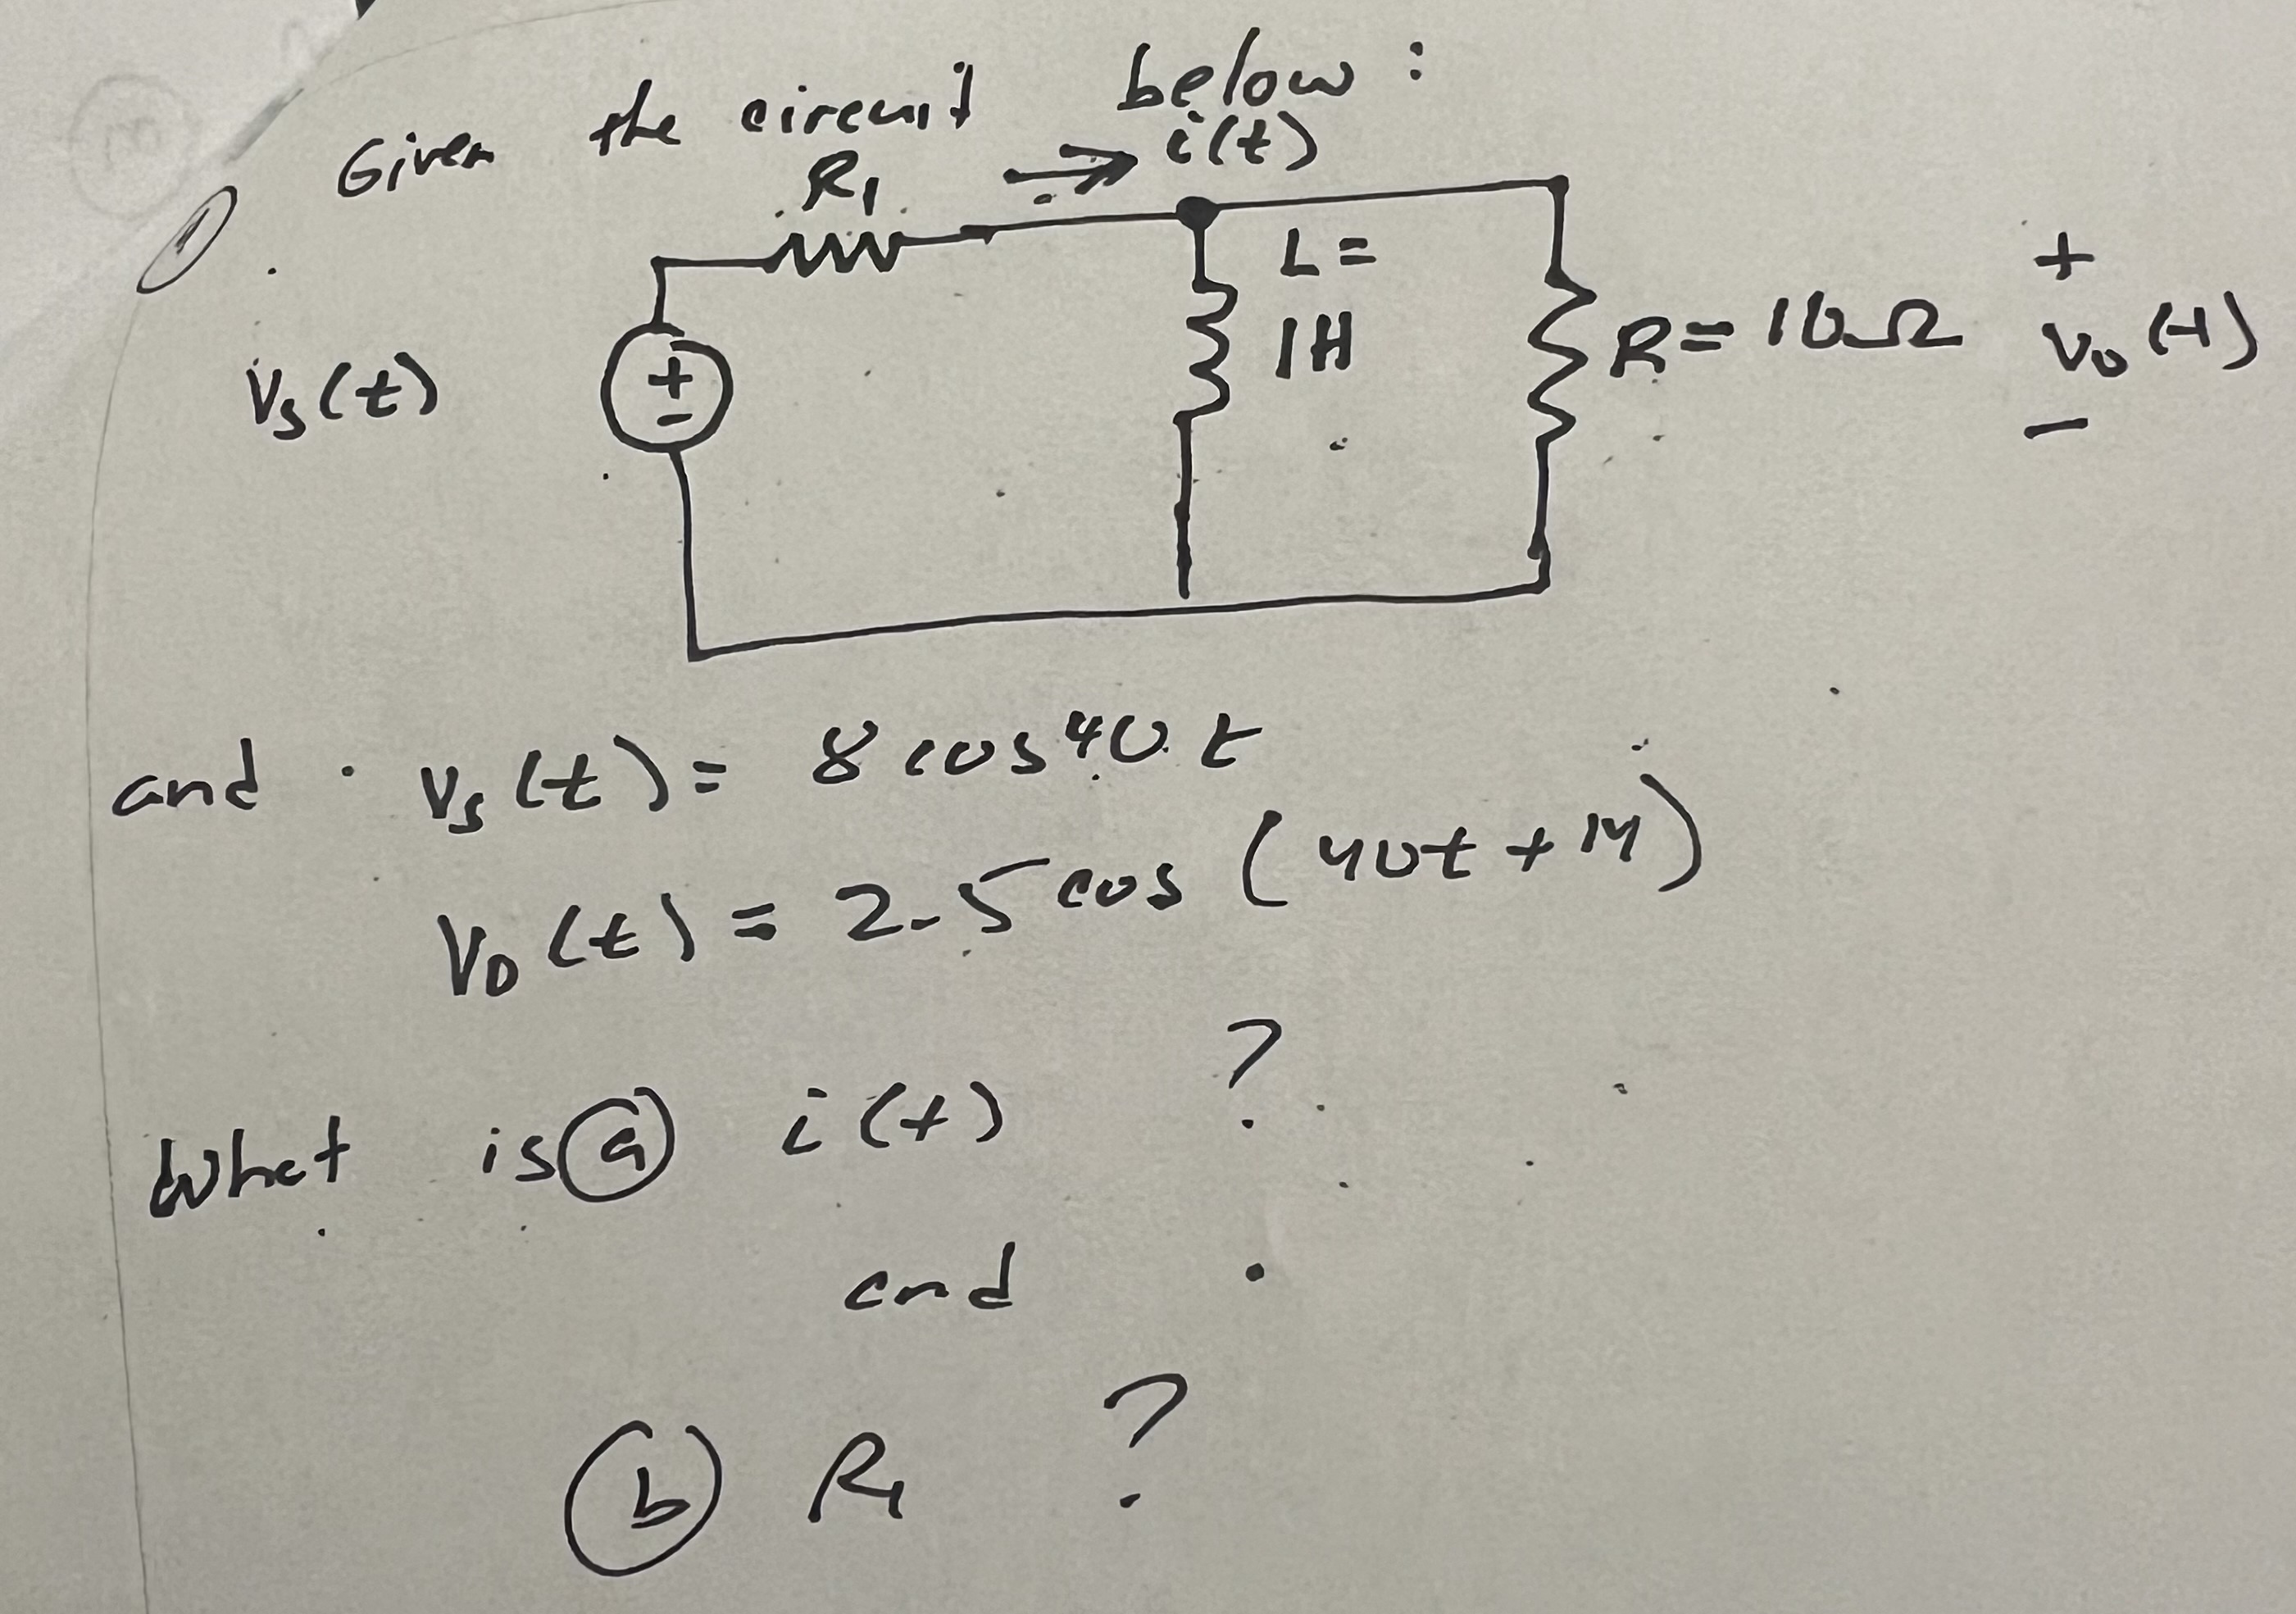 ① Given the circuit below:
R₁ → i(t)
L =
1H
R = 10Ω
+
v₀(t)
−
vₛ(t)
+
−
and vₛ(t) = 8 cos 40t
v₀(t) = 2.5 cos (40t + 14)
What is ⓐ i(t) ?
and
ⓑ R₁ ?